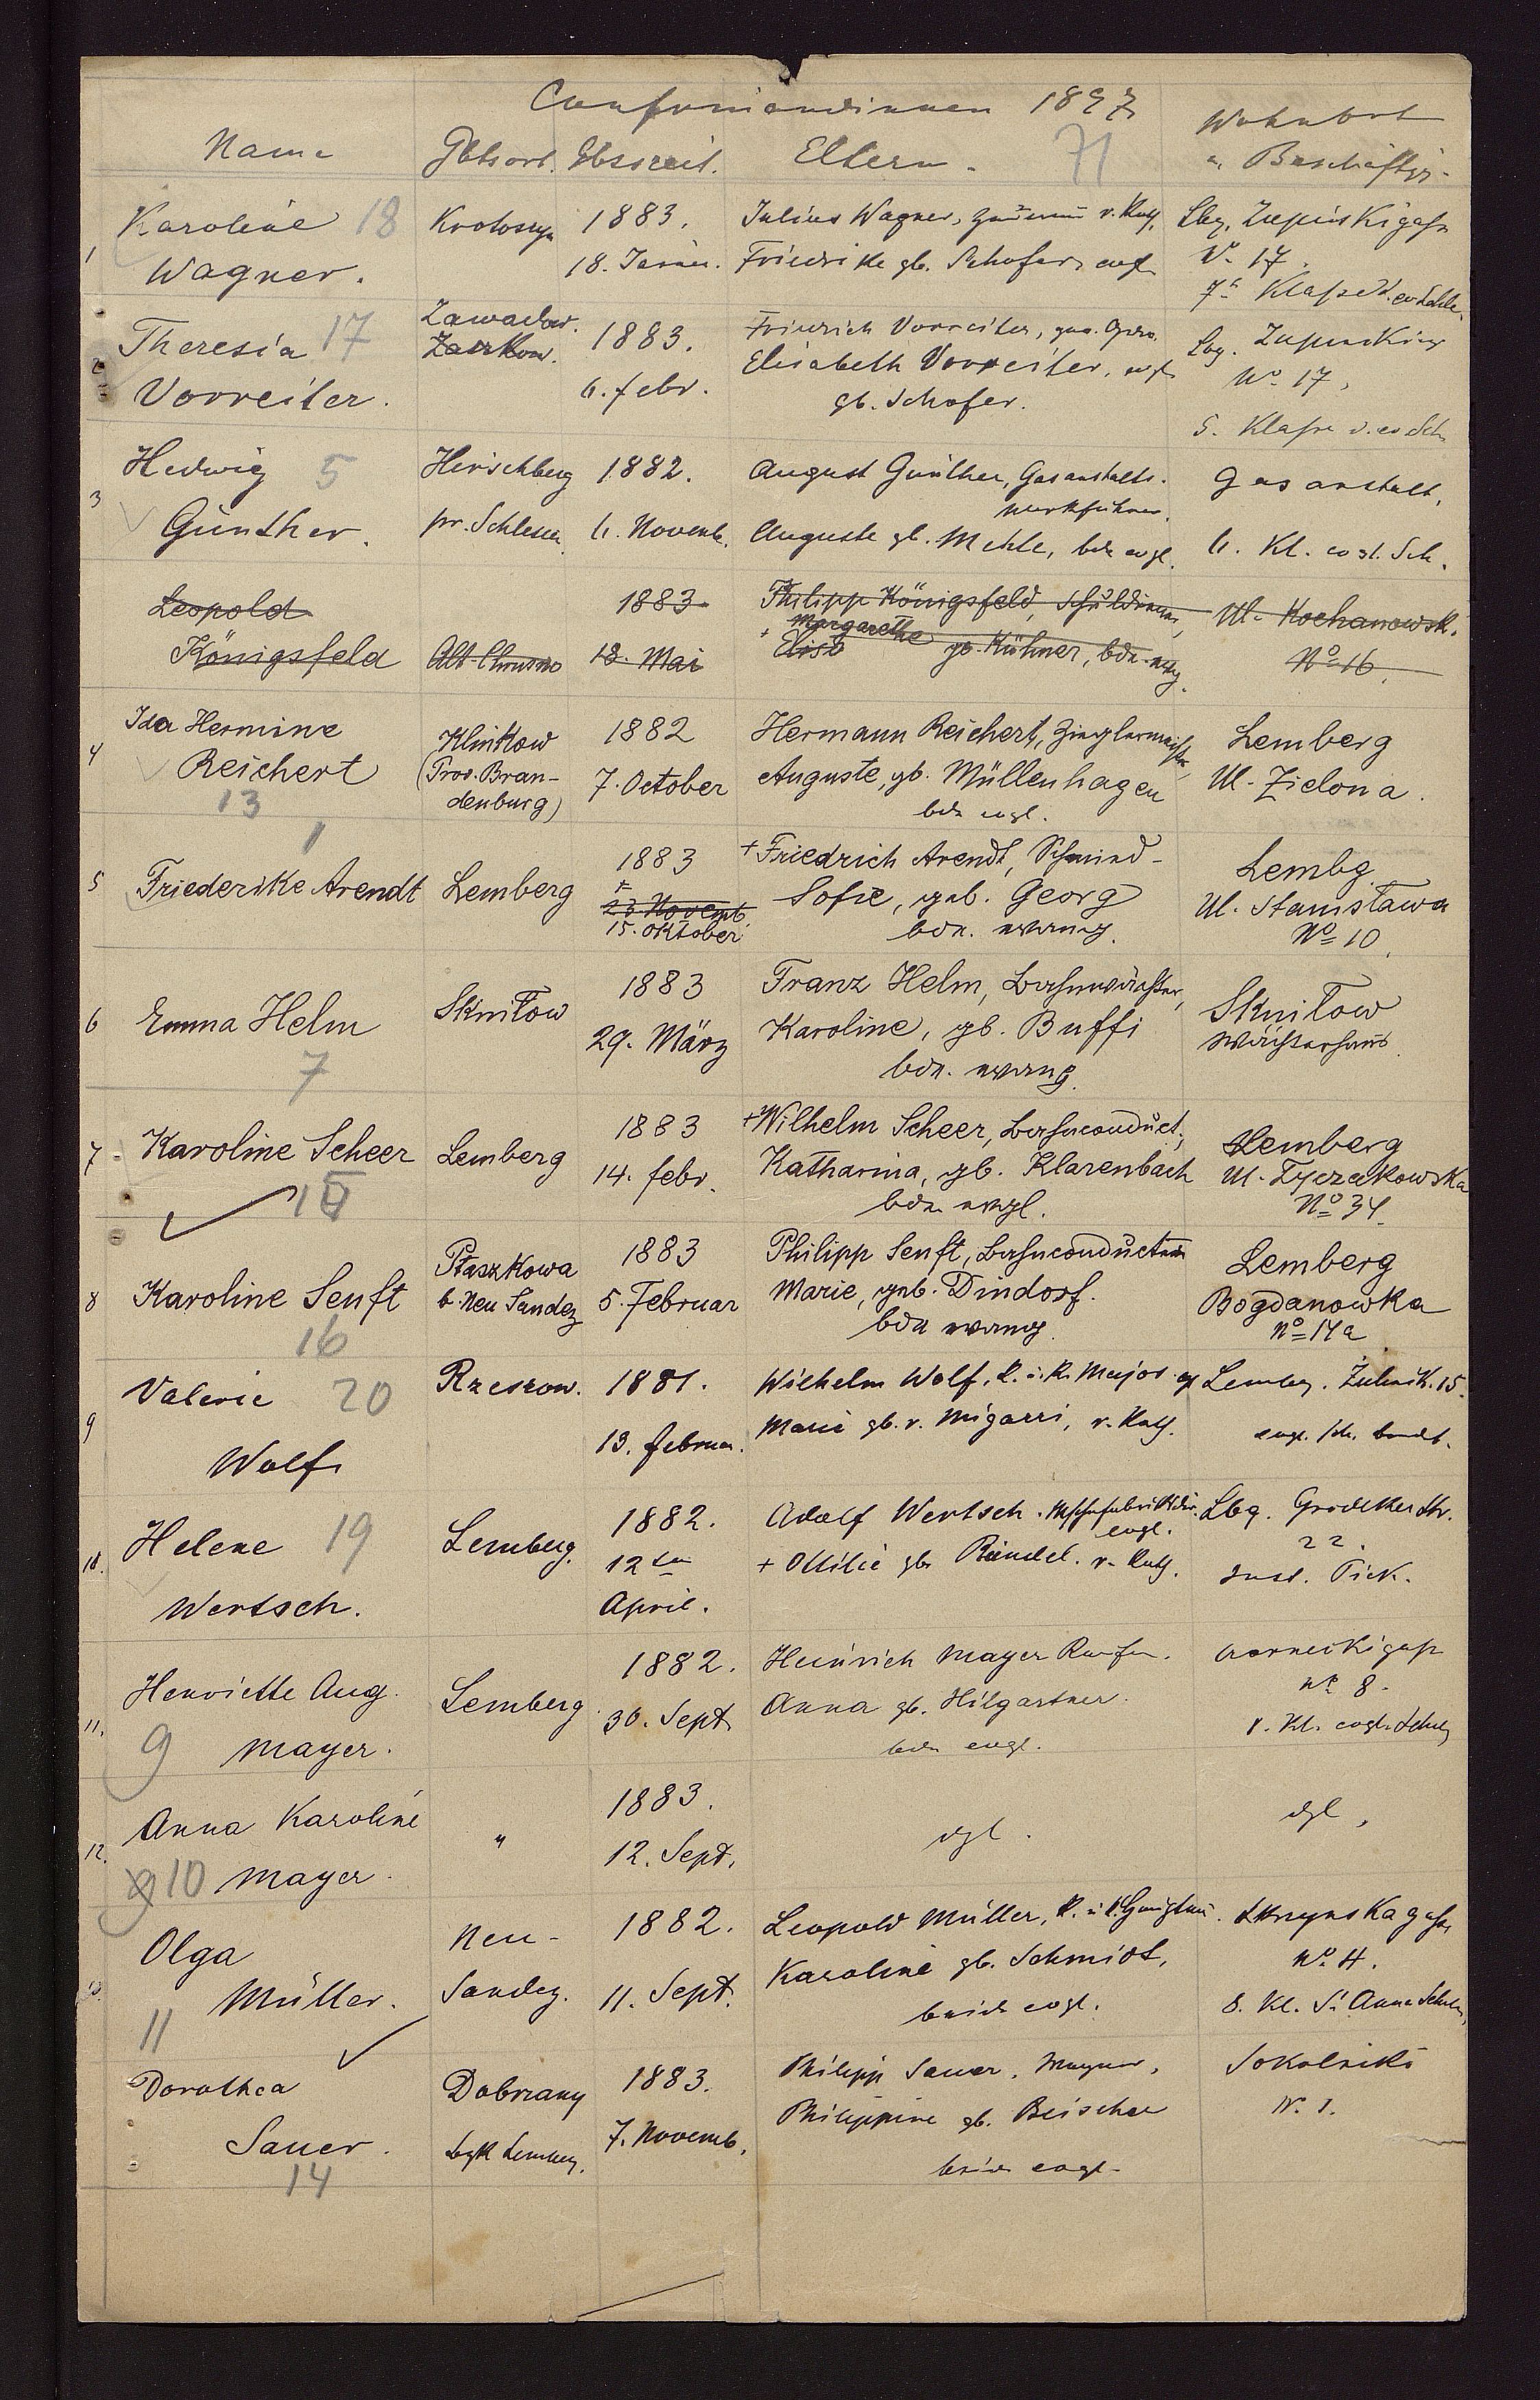 Confirmandinnen 1897
71
Name
Gbtsort. Gbtszeit.
Eltern.
Wohnort
u. Beschäftgg.
1
Karoline 18
Wagner.
Krotoszyn
1883.
18. Januar.
Julius Wagner, r. Kath.
Friedrike gb. Schofer, evgl
Lbg. Zupinskigasse
No. 17.
7te Klasse d. ev Schule.
2
Theresia 17
Vorreiter.
Zawadow.
Zaszkow.
1883.
6. febr.
Friedrich Vorreiter,
Elisabeth Vorreiter, evgl
gb. Schofer.
Lbg. Zupinskig
No 17,
5. Klasse d. ev Sch.
3
Hedwig 5
Günther.
Hirschberg
pr. Schlesien
1882.
6. Novemb.
August Günther, Gasanstalts-
werkführer.
Auguste gb. Mehle, bde evgl.
Gasanstalt,
6. Kl. evgl. Sch.
Leopold
Königsfeld
Alt-Chrusno
1883
18. Mai
Philipp Königsfeld, Schuldiener,
Margarethe
+ Elise gb. Kühner, bde. evg.
Ul. Kochanowsk.
No 16.
4
Ida Hermine
Reichert
13
Klinkow
(Prov. Bran-
denburg)
1882
7. October
Hermann Reichert, Zieglermeister,
Auguste, gb. Müllenhagen
bde evgl.
Lemberg
Ul. Zielona.
1
5
Friederike Arendt
Lemberg
1883
23. Novemb.
15. Oktober
+ Friedrich Arendt, Schmied-
Sofie, geb. Georg
bde. evang.
Lembg.
Ul. Stanisława
No 10.
6
Emma Helm
7
Skniłow
1883
29. März
Franz Helm, Bahnwächter,
Karoline, gb. Buffi
bde. evang.
Skniłow
Wächterhaus
7
Karoline Scheer
15
Lemberg
1883
14. febr.
+ Wilhelm Scheer, Bahnconduct.,
Katharina, gb. Klarenbach
bde evgl.
Lemberg
Ul. Łyczakowska
No 34.
8
Karoline Senft
16
Ptaszkowa
b. Neu Sandez
1883
5. Februar
Philipp Senft, Bahnconducteur
Marie, geb. Dindorf.
bde evang.
Lemberg
Bogdanowka
No 14a
9
Valerie 20
Wolf
Rzeszow.
1881.
13. februar.
Wilhelm Wolf, k. u. k. Major
Marie gb. v. Migazzi, r. Kath.
Lemberg. Zulinsk. 15.
10.
Helene 19
Wertsch.
Lemberg.
1882.
12ten
April.
Adolf Wertsch.
evgl.
+ Ottilie gb. Raindel. r. Kath.
Lbg. Grodetker Str.
22.
Inst. Pick.
11.
Henriette Aug.
9 Mayer.
Lemberg
1882.
30. Sept.
Heinrich Mayer Kaufm.
Anna gb. Hilgartner.
bde evgl.
No 8.
8. Kl. evgl. Schule
12.
Anna Karoline
9 10 Mayer.
"
1883.
12. Sept.
dgl.
dgl,
13.
Olga
11 Müller.
Neu-
Sandez.
1882.
11. Sept.
Leopold Müller,
Karoline gb. Schmidt,
beide evgl.
No 4.
8. Kl. St Anna Schule,
Dorothea
Sauer.
14
Dobrzany
1883.
7. Novemb.
Philipp Sauer, Wagner,
Philippine gb. Beischer
beide evgl.
Sokolniki
N. 1.